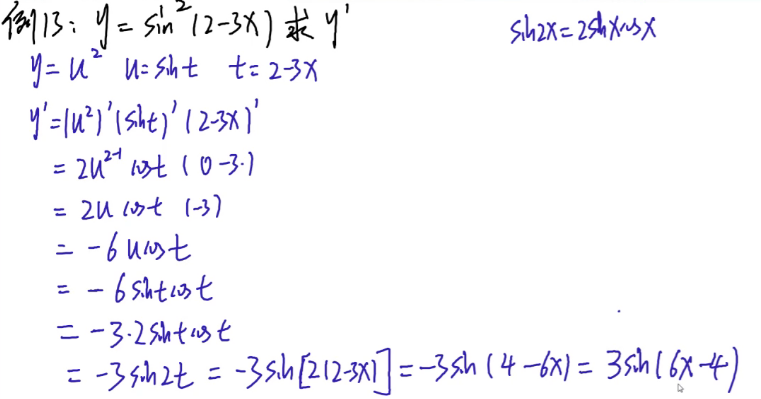 例13: y = sin²(2-3x) 求 y'
sin2x=2sinxcosx
y=u² u=sint t=2-3x
y'=(u²)'(sint)'(2-3x)'
= 2u²⁻¹ cost (0-3·)
= 2u cost (-3)
= -6ucost
= -6sintcost
= -3·2sintcost
= -3sin2t = -3sin[2(2-3x)] = -3sin(4-6x) = 3sin(6x-4)